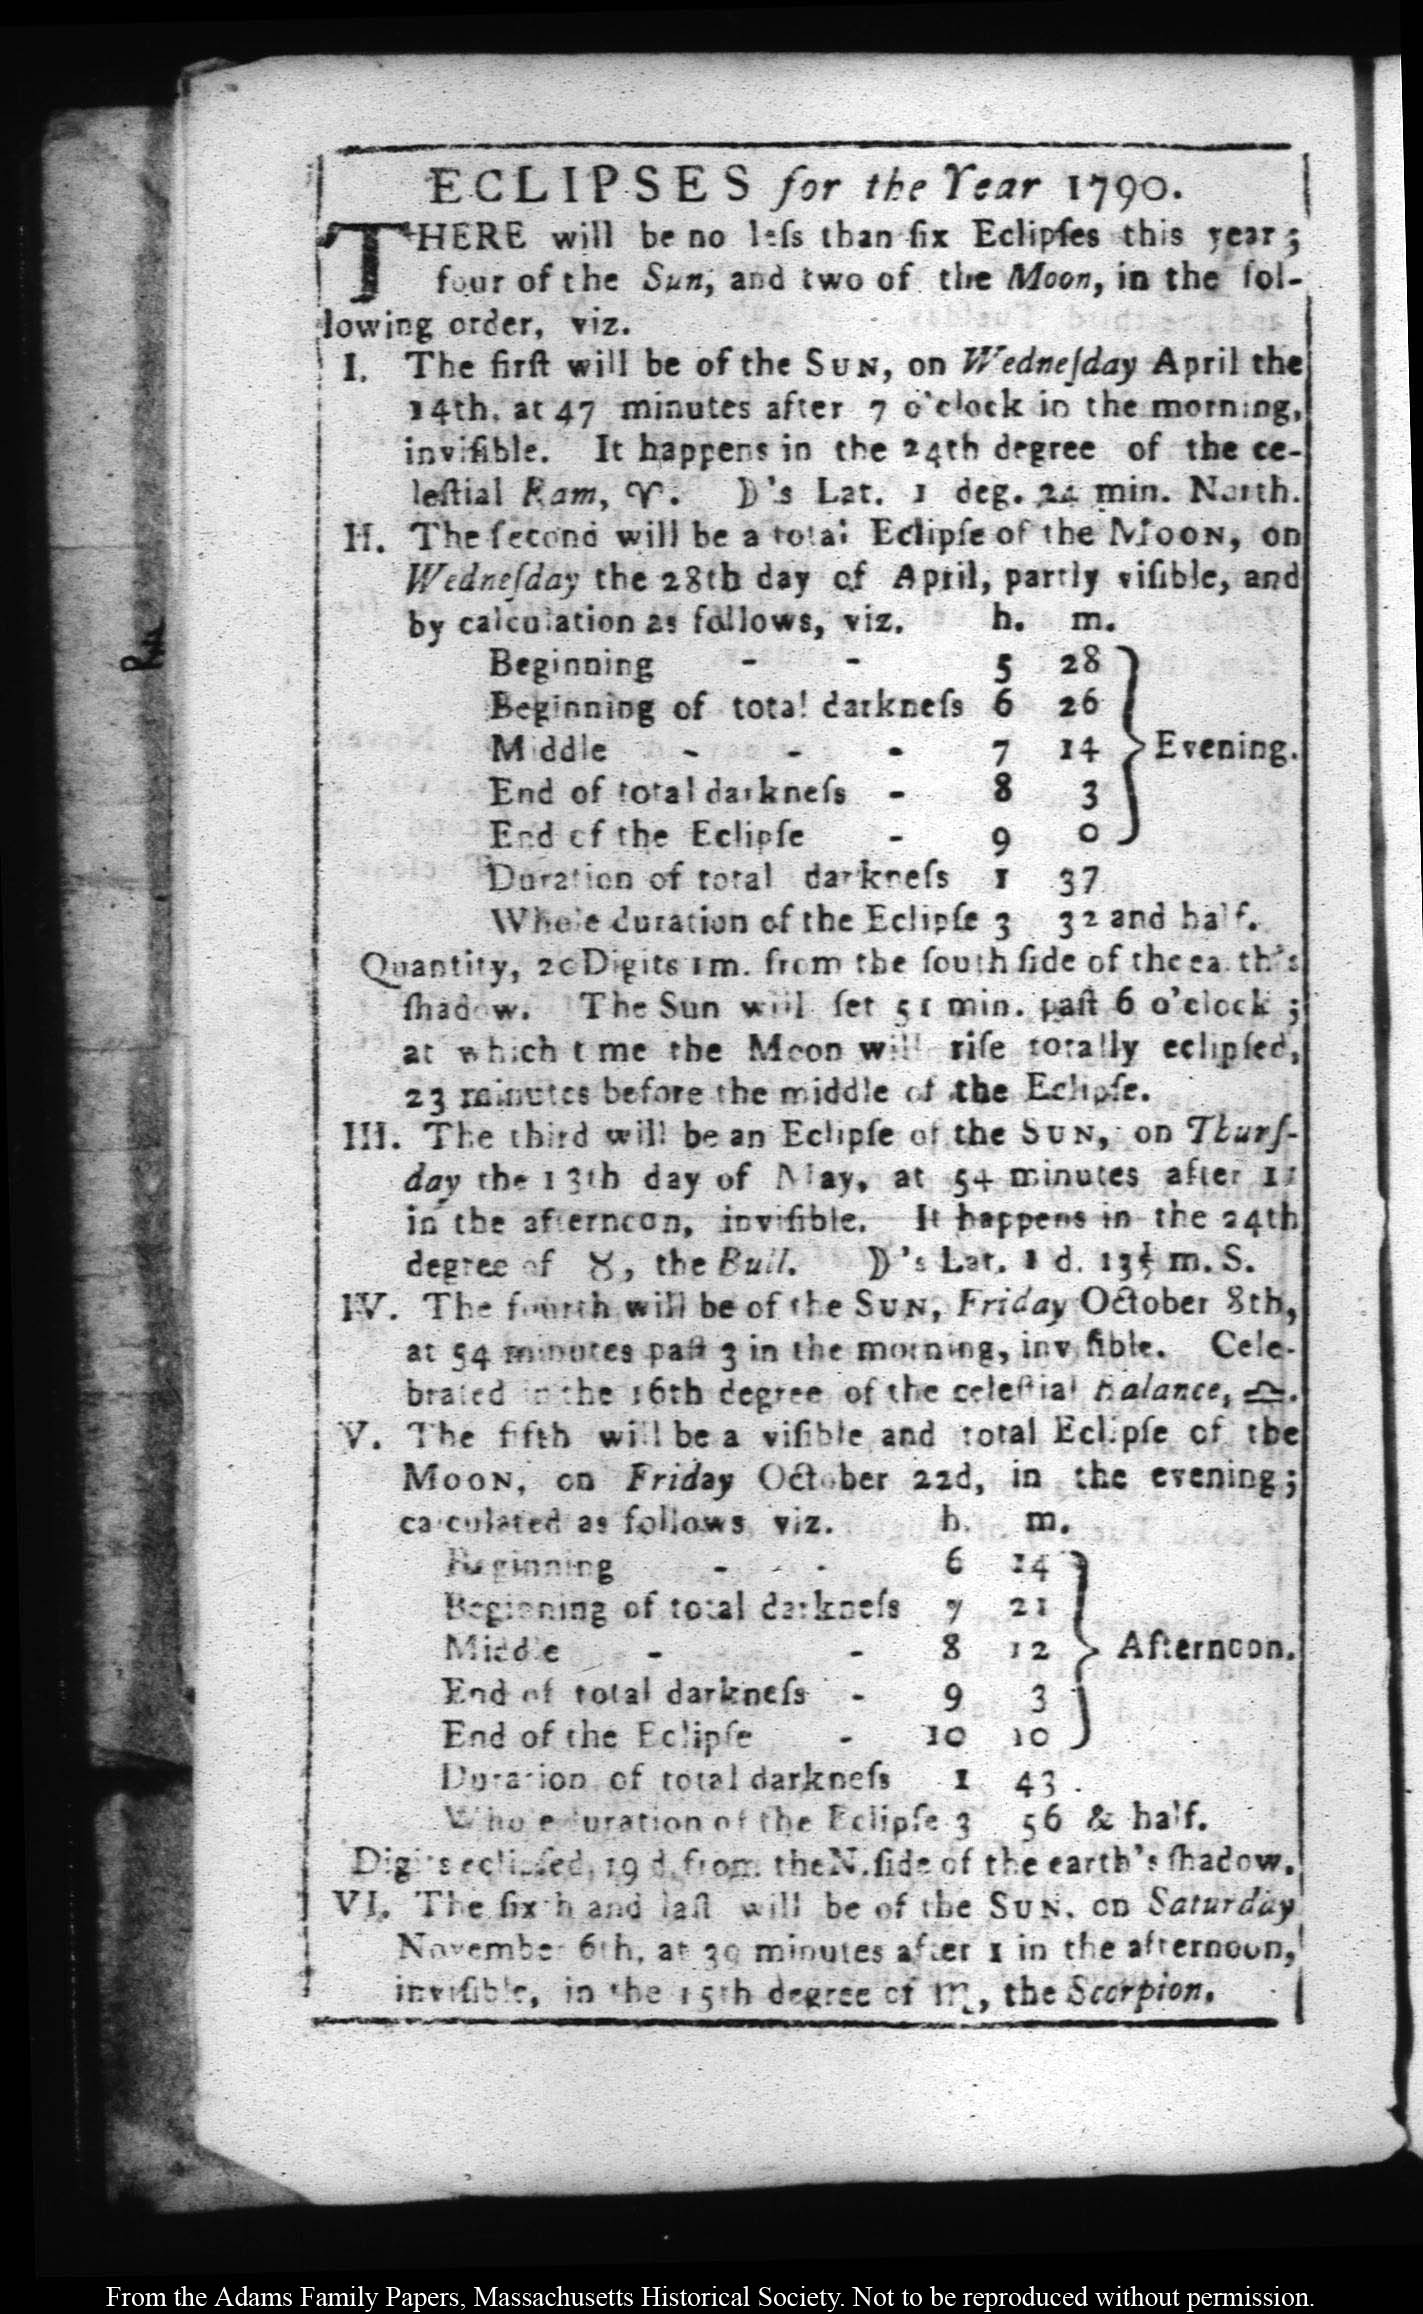 ECLIPSES for the Year 1790.
THERE will be no leſs than ſix Eclipſes this year;
four of the Sun, and two of the Moon, in the fol-
lowing order, viz.
I. The firſt will be of the SUN, on Wedneſday April the
14th. at 47 minutes after 7 o'clock in the morning,
inviſible. It happens in the 24th degree of the ce-
leſtial Ram, ♈. ☽'s Lat. 1 deg. min. North.
II. The ſecond will be a total Eclipſe of the MOON, on
Wedneſday the 28th day of April, partly viſible, and
by calculation as follows, viz. h. m.
Beginning - - 5 28
Beginning of total darkneſs 6 26
Middle - - - 7 14 Evening.
End of total darkneſs - 8 3
End of the Eclipſe - 9 0
Duration of total darkneſs 1 37
Whole duration of the Eclipſe 3 32 and half.
Quantity, 20 Digits 1m. from the ſouth ſide of the earth's
ſhadow. The Sun will ſet 51 min. paſt 6 o'clock;
at which time the Moon will riſe totally eclipſed,
23 minutes before the middle of the Eclipſe.
III. The third will be an Eclipſe of the SUN, on Thurſ-
day the 13th day of May, at 54 minutes after 11
in the afternoon, inviſible. It happens in the 24th
degree of ♉, the Bull. ☽'s Lat. 1 d. 13½ m. S.
IV. The fourth will be of the SUN, Friday October 8th,
at 54 minutes paſt 3 in the morning, inviſible. Cele-
brated in the 16th degree of the celeſtial Balance, ♎.
V. The fifth will be a viſible and total Eclipſe of the
MOON, on Friday October 22d, in the evening;
calculated as follows viz. h. m.
Beginning - - - 6 14
Beginning of total darkneſs 7 21
Middle - - 8 12 Afternoon.
End of total darkneſs - 9 3
End of the Eclipſe - 10 10
Duration of total darkneſs 1 43.
Whole duration of the Eclipſe 3 56 & half.
Digits eclipſed, 19 d. from the N. ſide of the earth's ſhadow.
VI. The ſixth and laſt will be of the SUN, on Saturday
November 6th, at 39 minutes after 1 in the afternoon,
inviſible, in the 15th degree of ♏, the Scorpion.
From the Adams Family Papers, Massachusetts Historical Society. Not to be reproduced without permission.